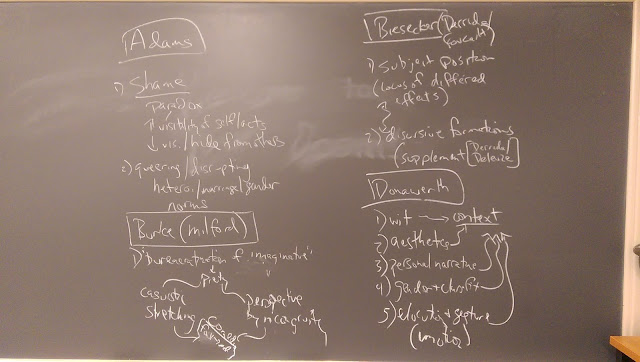 Adams
1) Shame
Paradox
↑ visibility of self/acts
↓ vis. / hide from others
2) queering/disrupting
hetero/marriage/gender
norms
Burke (Milford)
1) "bureaucratization of imaginative"
piety
casuistic
stretching
perspective
by incongruity
Biesecker (Derrida/
Foucault)
1) Subject position
(locus of differed
effects)
2) discursive formations
(supplement [Derrida/
Deleuze
Donawerth
1) wit → context
2) aesthetics
3) personal narrative
4) gender + class
5) elocution + gesture